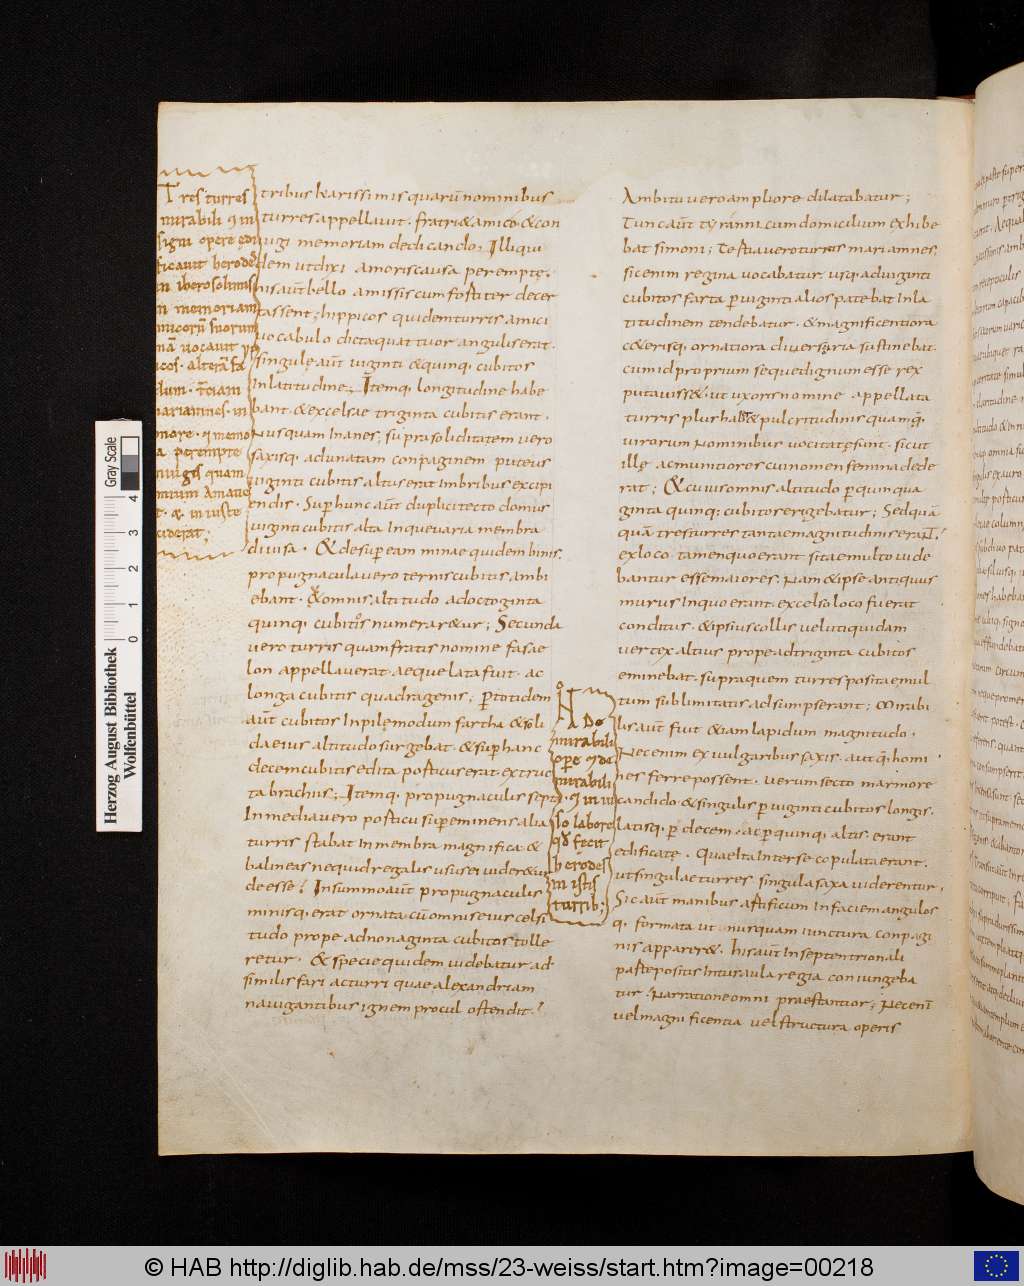 Tres turres
mirabili & in
signi opere edi
ficavit herodes
in iherosolimis
in memoriam
amicorū suorum
vocavit yp
icos · alterā fa
mariamnes · in
more · & memo
perempte
quam
amave
t · & in iuste
tribus karissimis quarū nominibus
turres appellavit · fratri & amico & con
iugi memoriam dedicando · Illi qui
dem ut dixi amoris causa perempte;
his aūt bello amissis cum fortiter decer
tassent; hippicos quidem turris amici
vocabulo dicta quattuor angulis erat ·
singulę aūt viginti & quinq; cubitos
In latitudine; Itemq; longitudine habe
bant · & excelsae triginta cubitis erant ·
Nusquam Inanes, supra soliditatem vero
saxisq; adunatam conpaginem puteus
viginti cubitis altus erat Imbribus excipi
endis · Sup hunc aūt duplici tecto domus
viginti cubitis alta Inque varia membra
divisa · & desup eam minae quidem binis,
propugnacula vero ternis cubitis ambi
ebant · & omnis altitudo ad octoginta
quinq; cubitos numeraretur; Secunda
vero turris quam fratris nomine fasae
lon appellaverat aeque lata fuit · ac
longa cubitis quadragenis; p totidem
aūt cubitos In pilę modum fartha & soli
da eius altitudo surgebat · & sup hanc
decem cubitis edita porticus erat extruc
ta brachiis; Itemq; propugnaculis septa ·
In media vero porticu sup eminens alia
turris stabat In membra magnifica &
balineas ne quid regalis usus ei videretur
deesse; In summo aūt propugnaculis
minisq; erat ornata cū omnis eius celsi
tudo prope ad nonaginta cubitos tolle
retur · & specie quidem videbatur ad
similis fari ac turri quae alexandriam
navigantibus ignem procul ostendit;
De
mirabili
opere & de
mirabili
& in iu
lo labore
qd fecit
herodes
in istis
turrib;
Ambitu vero ampliore dilatabatur;
Tunc aūt tyranni cum domicilium exhibe
bat simoni; Testia vero turris mariamnes,
sic enim regina vocabatur, usq; ad viginti
cubitos farta p viginti alios patebat In la
titudinem tendebatur · & magnificentiora
ceterisq; ornatiora diversoria sustinebat ·
cum id proprium se quę dignum esse rex
putavisset · ut uxoris nomine appellata
turris plus haberet pulcritudinis quamq;
virorum Nominibus vocitatę sunt · sicut
illę ac munitiores cui nomen femina dede
rat; & cui us omnis altitudo p quinqua
ginta quinq; cubitos erigebatur; Sed quā
quā tres turres tantae magnitudinis erant ·
ex loco tamen quo erant sitae multo vide
bantur esse maiores · Nam & ipse antiquus
murus In quo erant · excelso loco fuerat
conditus · & ipsius collis velut i quidam
vertex altius prope ad triginta cubitos
eminebat · supra quem turres posita e mul
tum sublimitatis adsumpserant; Mirabi
lis aūt fuit & iam lapidum magnitudo ·
Nec enim ex vulgaribus saxis · aut q; homi
nes ferre possent · verum secto marmore
candido · & singulis p viginti cubitos longis,
latisq; p decem · ac p quinq; altis erant
edificatę · Quae Ita Inter se copulata erant ·
ut singulae turres singula saxa viderentur ·
Sic aūt manibus artificum In faciem angulos
q; formata ut nusquam iunctura conpagi
nis appareret · his aūt In septentrionali
parte positis Intus aula regia coniungeba
tur · Narratione omni praestantior; Nec enī
vel magnificentia vel structura operis
Gray Scale
0 1 2 3 4
Herzog August Bibliothek
Wolfenbüttel
© HAB http://diglib.hab.de/mss/23-weiss/start.htm?image=00218